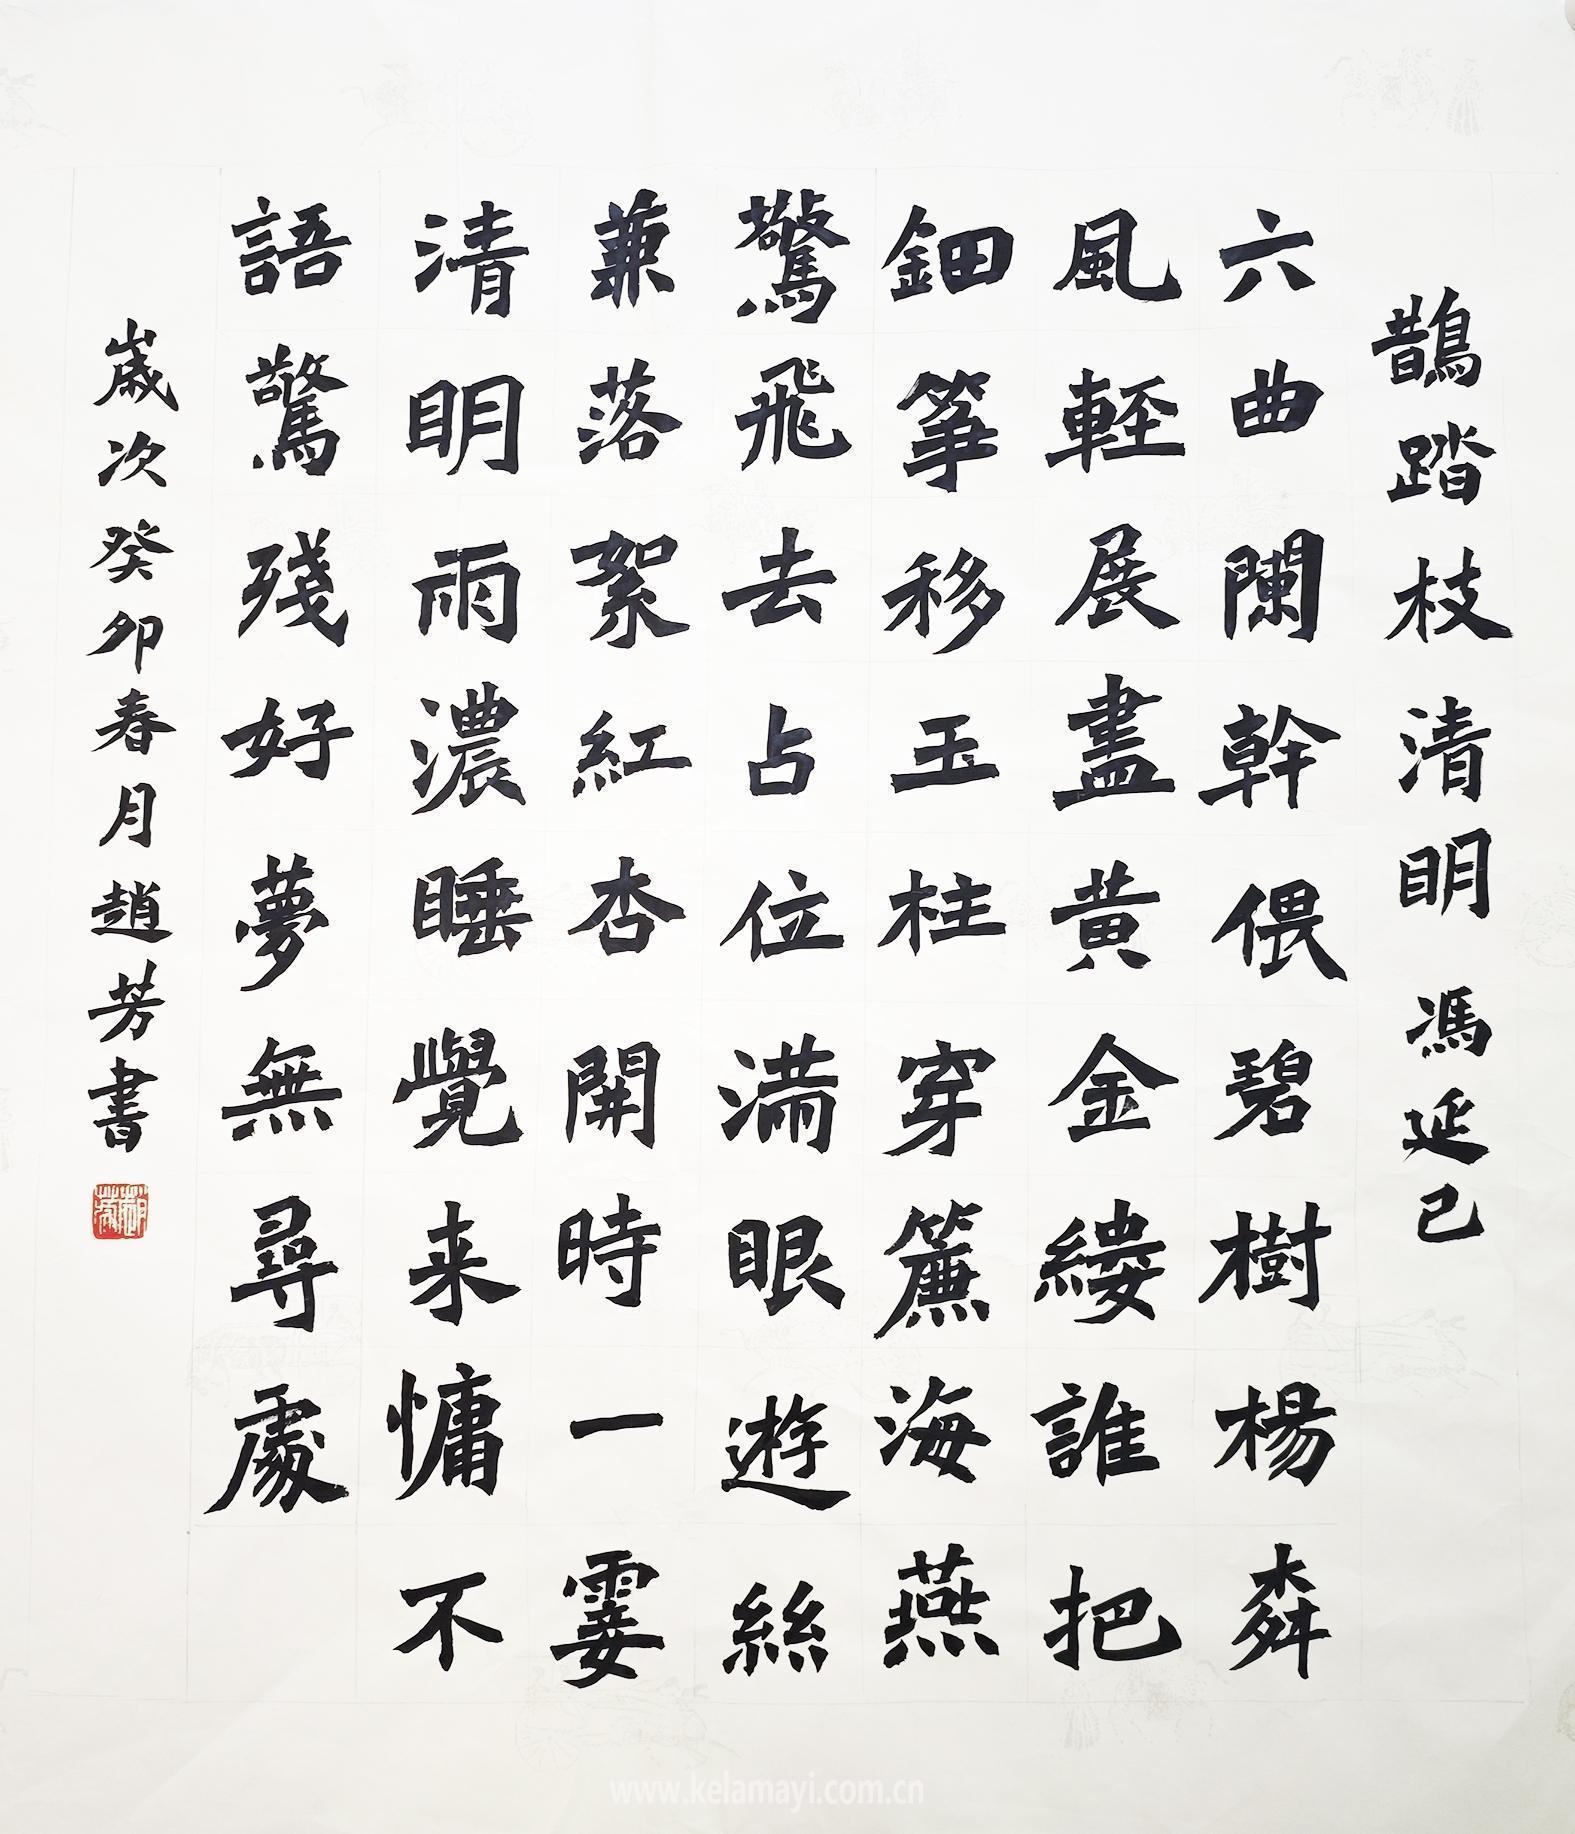 鵲踏枝 清明 馮延己
六曲闌幹偎碧樹楊粦
風輕展盡黄金縷誰把
鈿筝移玉柱穿簾海燕
驚飛去占位满眼遊絲
兼落絮紅杏開時一霎
清明雨濃睡覺来慵不
語驚残好夢無尋處
歲次癸卯春月趙芳書
www.kelamayi.com.cn